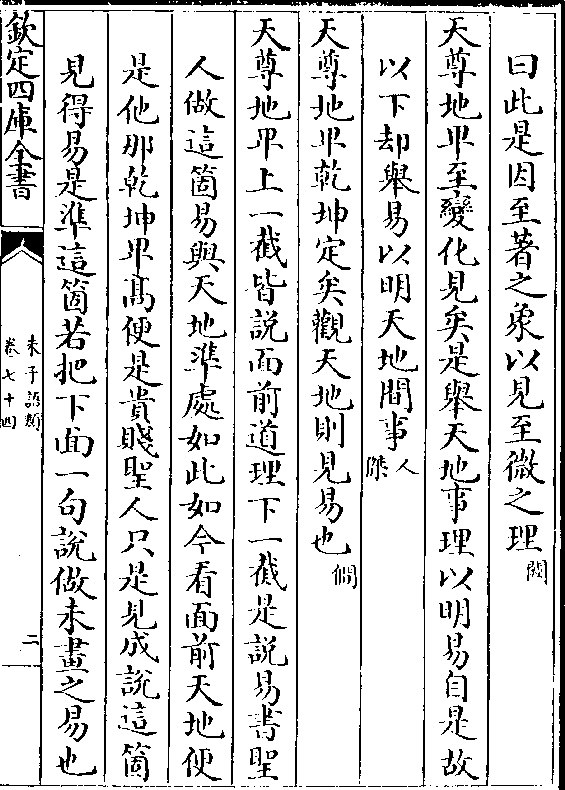 曰此是因至著之象以見至微之理閎
天尊地卑至變化見矣是舉天地事理以明易自是故
以下却舉易以明天地間事人傑
天尊地卑乾坤定矣觀天地則見易也僩
天尊地卑上一截皆説面前道理下一截是説易書聖
人做這箇易與天地準處如此如今看面前天地便
是他那乾坤卑髙便是貴賤聖人只是見成説這箇
見得易是準這箇若把下面一句説做未畫之易也
欽定四庫全書
朱子語類
卷七十四
二